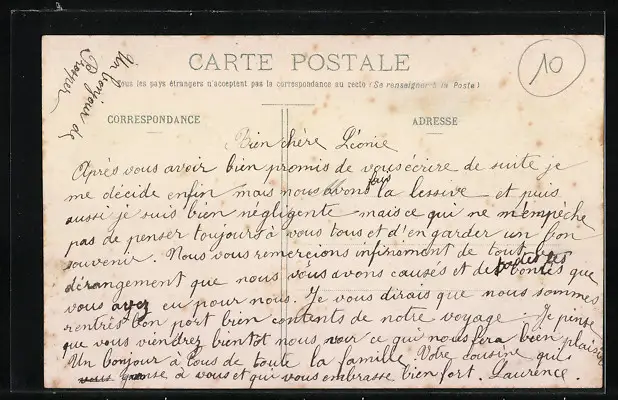 Un bonjour de
Prosper
10
CARTE POSTALE
Tous les pays étrangers n'acceptent pas la correspondance au recto (Se renseigner à la Poste)
CORRESPONDANCE
ADRESSE
Bien chère Léonie
Après vous avoir bien promis de vous écrire de suite je
me décide enfin mais nous avons fais la lessive et puis
aussi je suis bien négligente mais ce qui ne m'empêche
pas de penser toujours à vous tous et d'en garder un bon
souvenir. Nous vous remercions infiniment de tout le
dérangement que nous vous avons causés et de toutes les bontés que
vous avez eu pour nous. Je vous dirais que nous sommes
rentrés bon port bien contents de notre voyage. Je pense
que vous viendrez bientôt nous voir ce qui nous fera bien plaisir
Un bonjour à tous de toute la famille. Votre cousine qui
pense à vous et qui vous embrasse bien fort. Laurence.